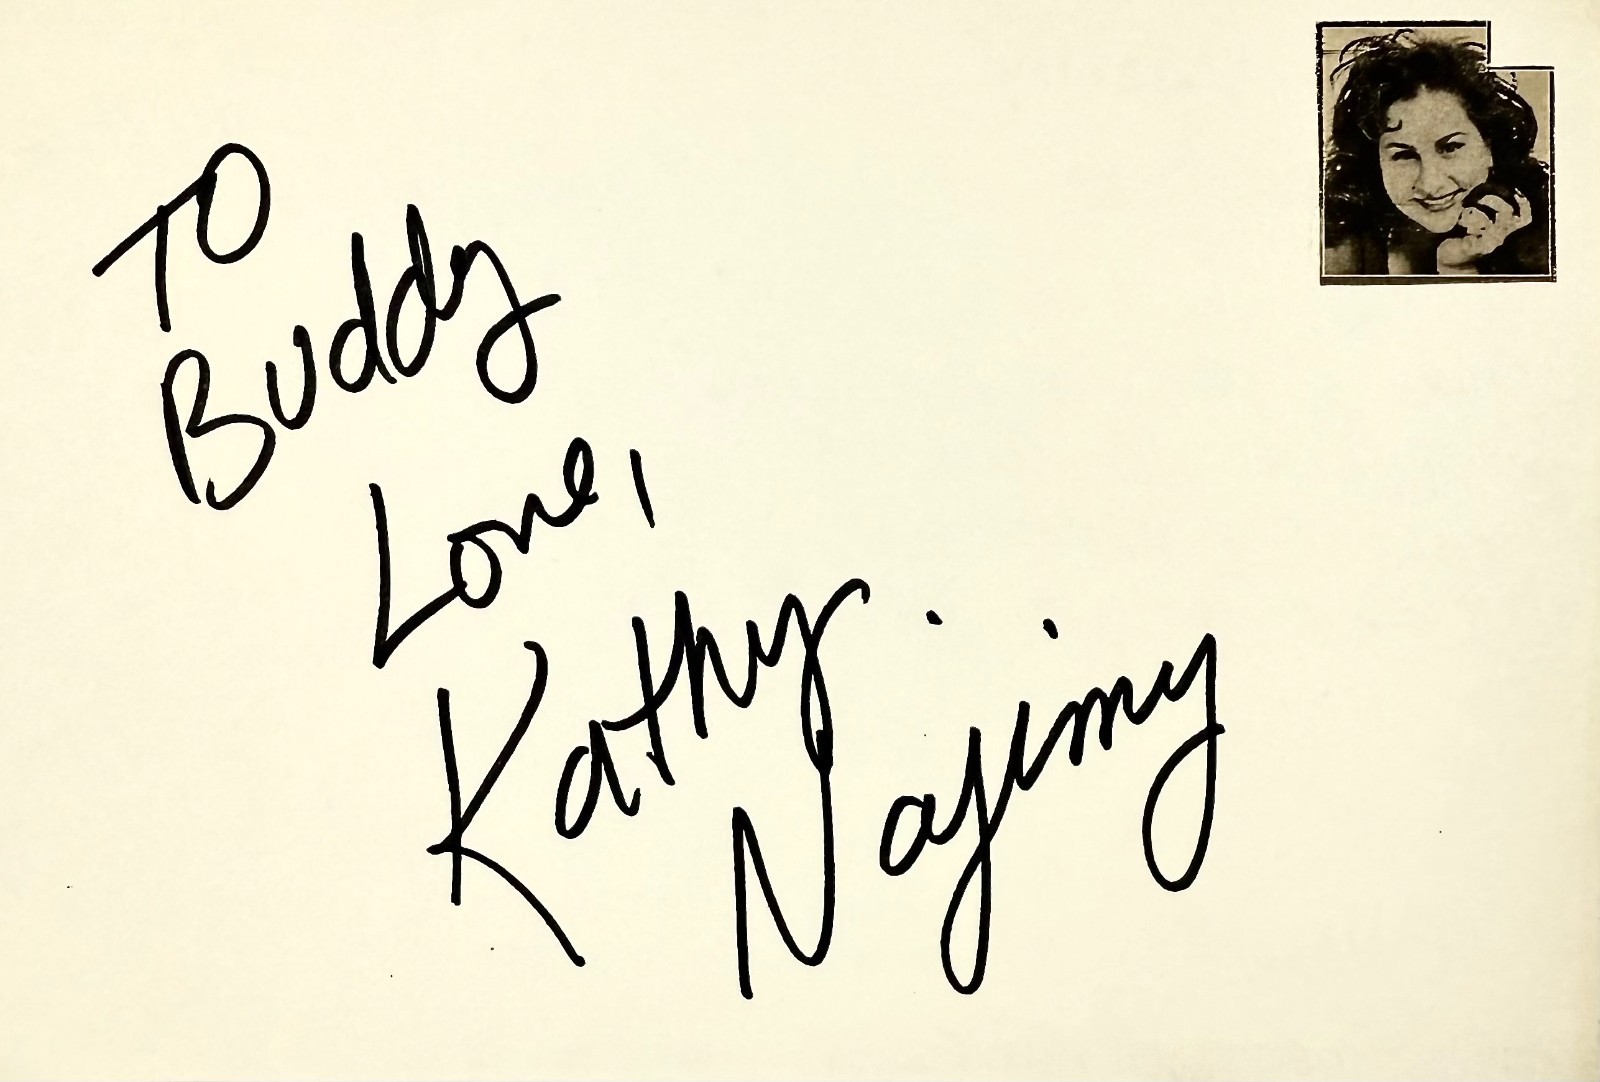 TO
Buddy
Love,
Kathy
Najimy